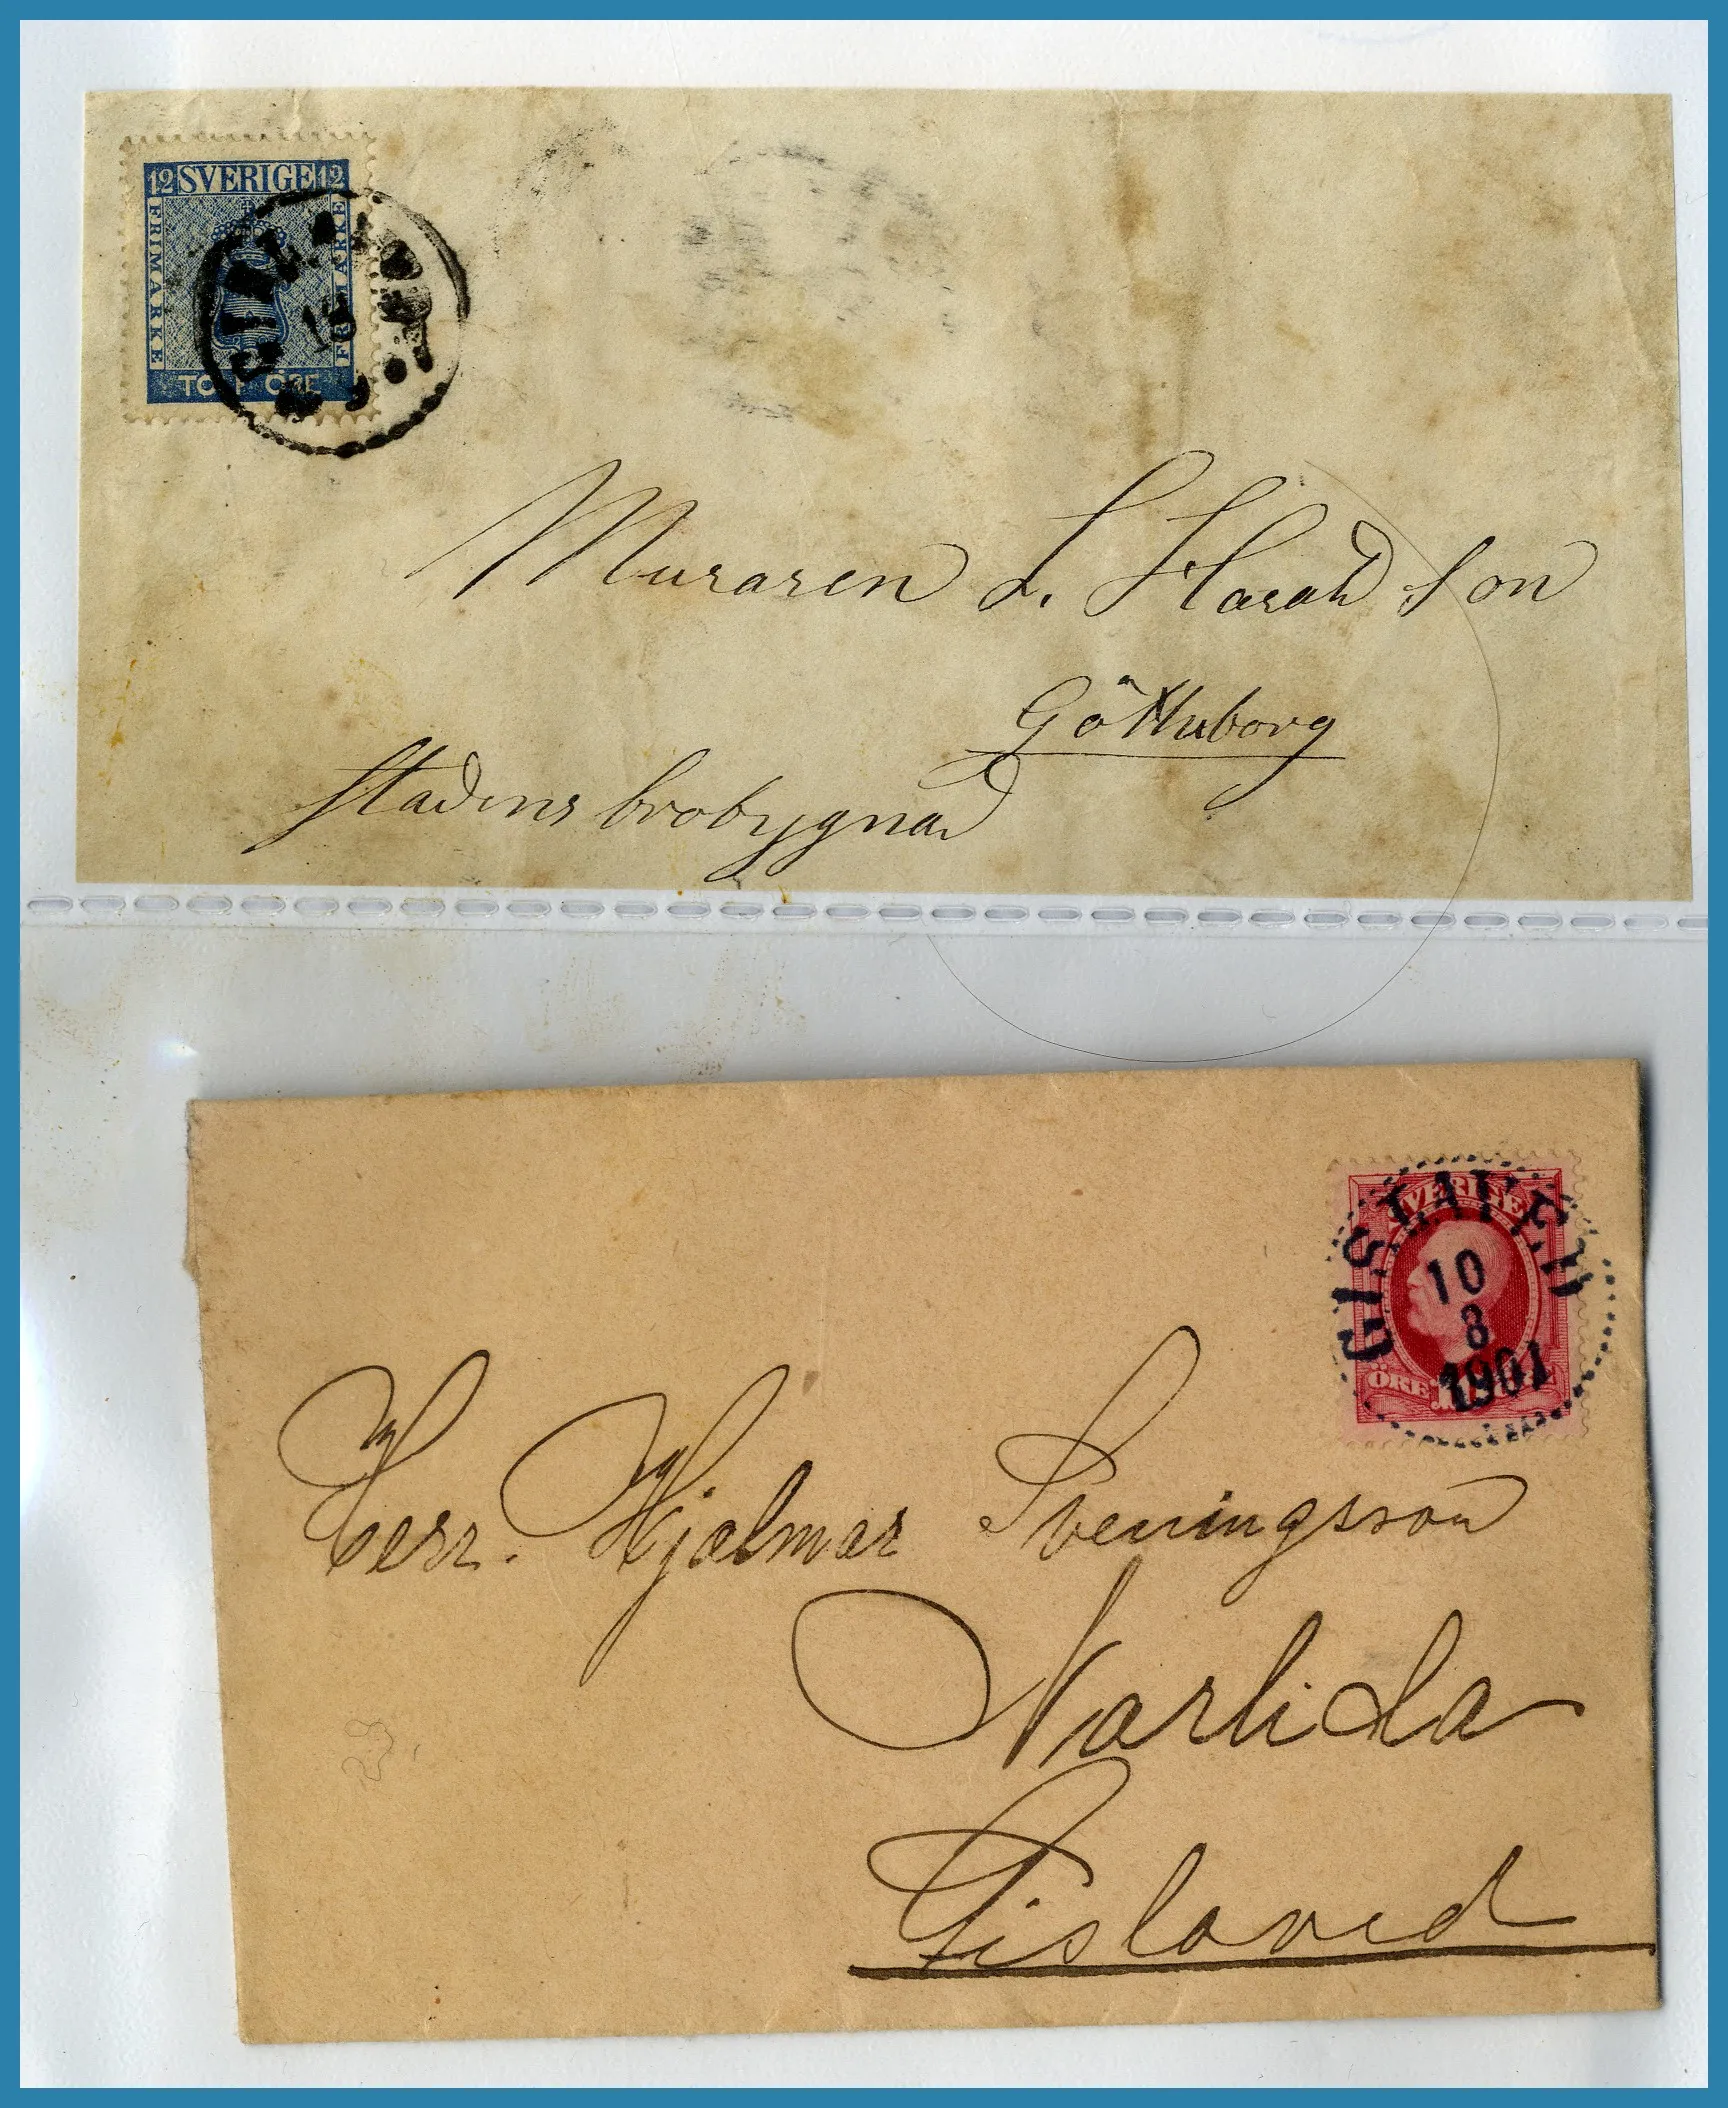 12 SVERIGE 12
FRIMÄRKE
FRIMÄRKE
TOLF ÖRE
Muraren L. Haraldson
Götheborg
stadens brobygnad
SVERIGE
GISLAVED
10
8
1901
ÖRE
Herr. Hjalmar Sveningsson
Narlida
Gislaved
23